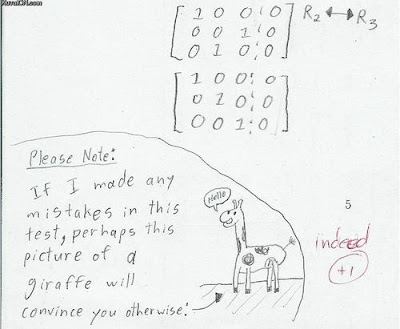 [ 1 0 0 ¦ 0 ] R2 ↔ R3
[ 0 0 1 ¦ 0 ]
[ 0 1 0 ¦ 0 ]
[ 1 0 0 ¦ 0 ]
[ 0 1 0 ¦ 0 ]
[ 0 0 1 ¦ 0 ]
Please Note:
If I made any
mistakes in this
test, perhaps this
picture of a
giraffe will
convince you otherwise:
Hello
5
indeed
+1